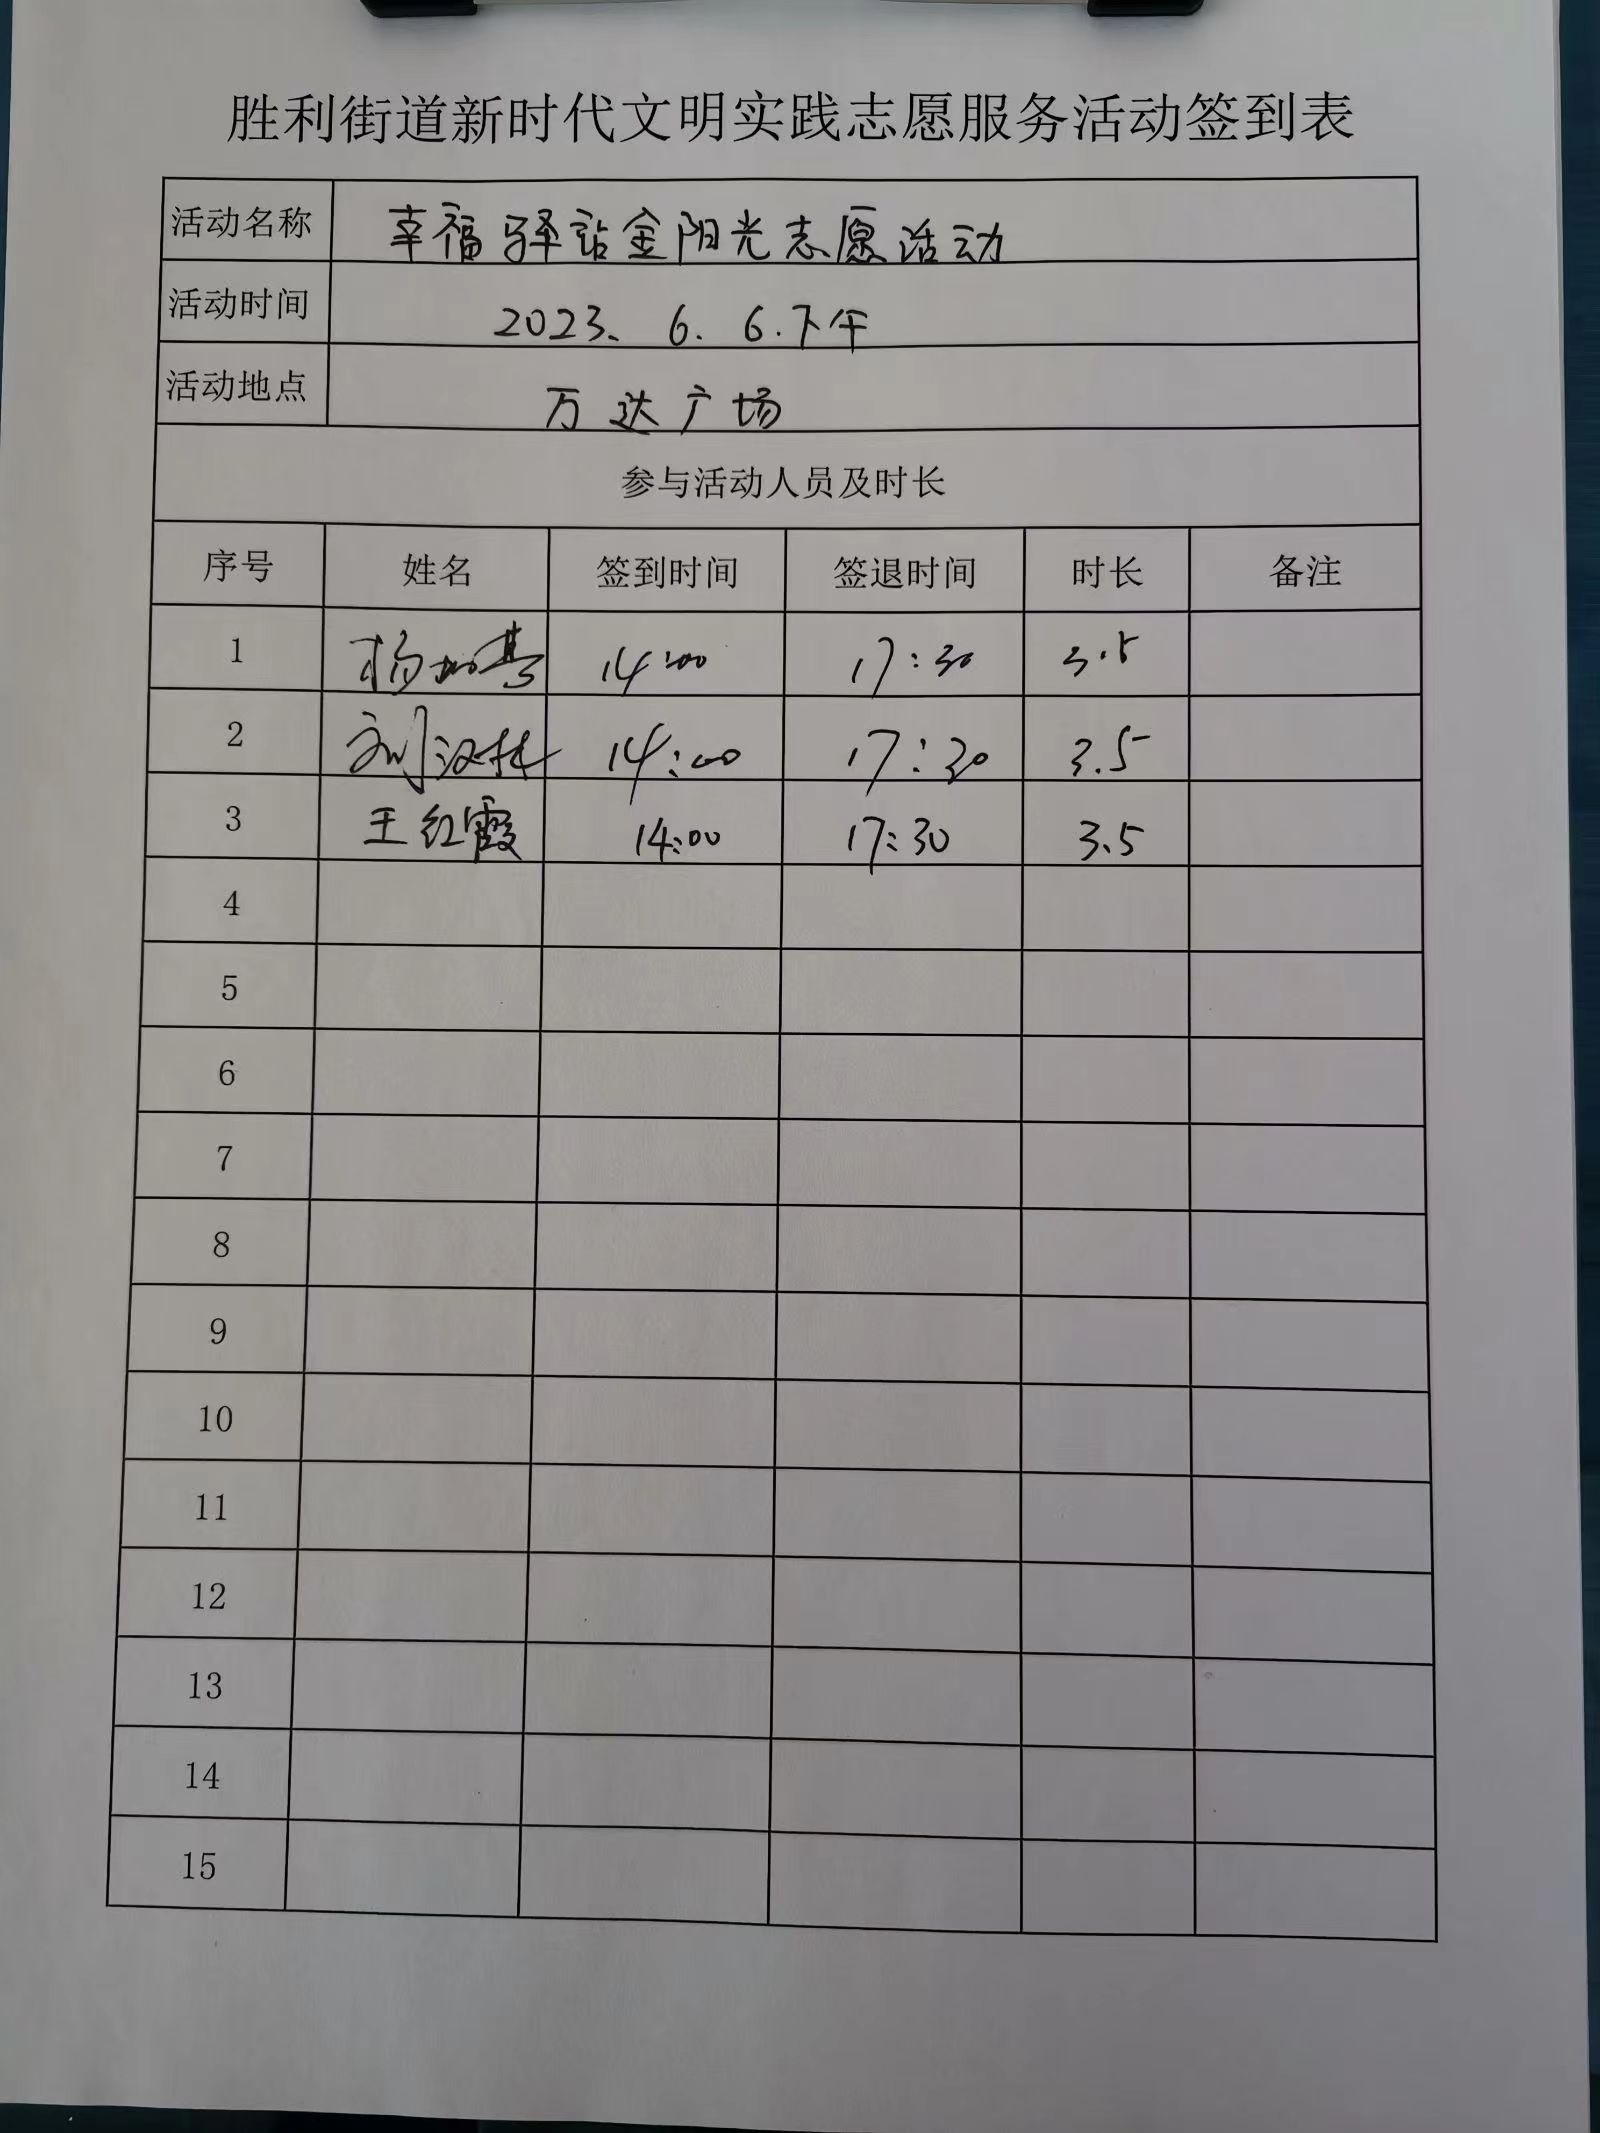 胜利街道新时代文明实践志愿服务活动签到表
活动名称 幸福驿站金阳光志愿活动
活动时间 2023、6、6.下午
活动地点 万达广场
参与活动人员及时长
序号 姓名 签到时间 签退时间 时长 备注
1 14:00 17:30 3.5
2 刘汉林 14:00 17:30 3.5
3 王红霞 14:00 17:30 3.5
4
5
6
7
8
9
10
11
12
13
14
15